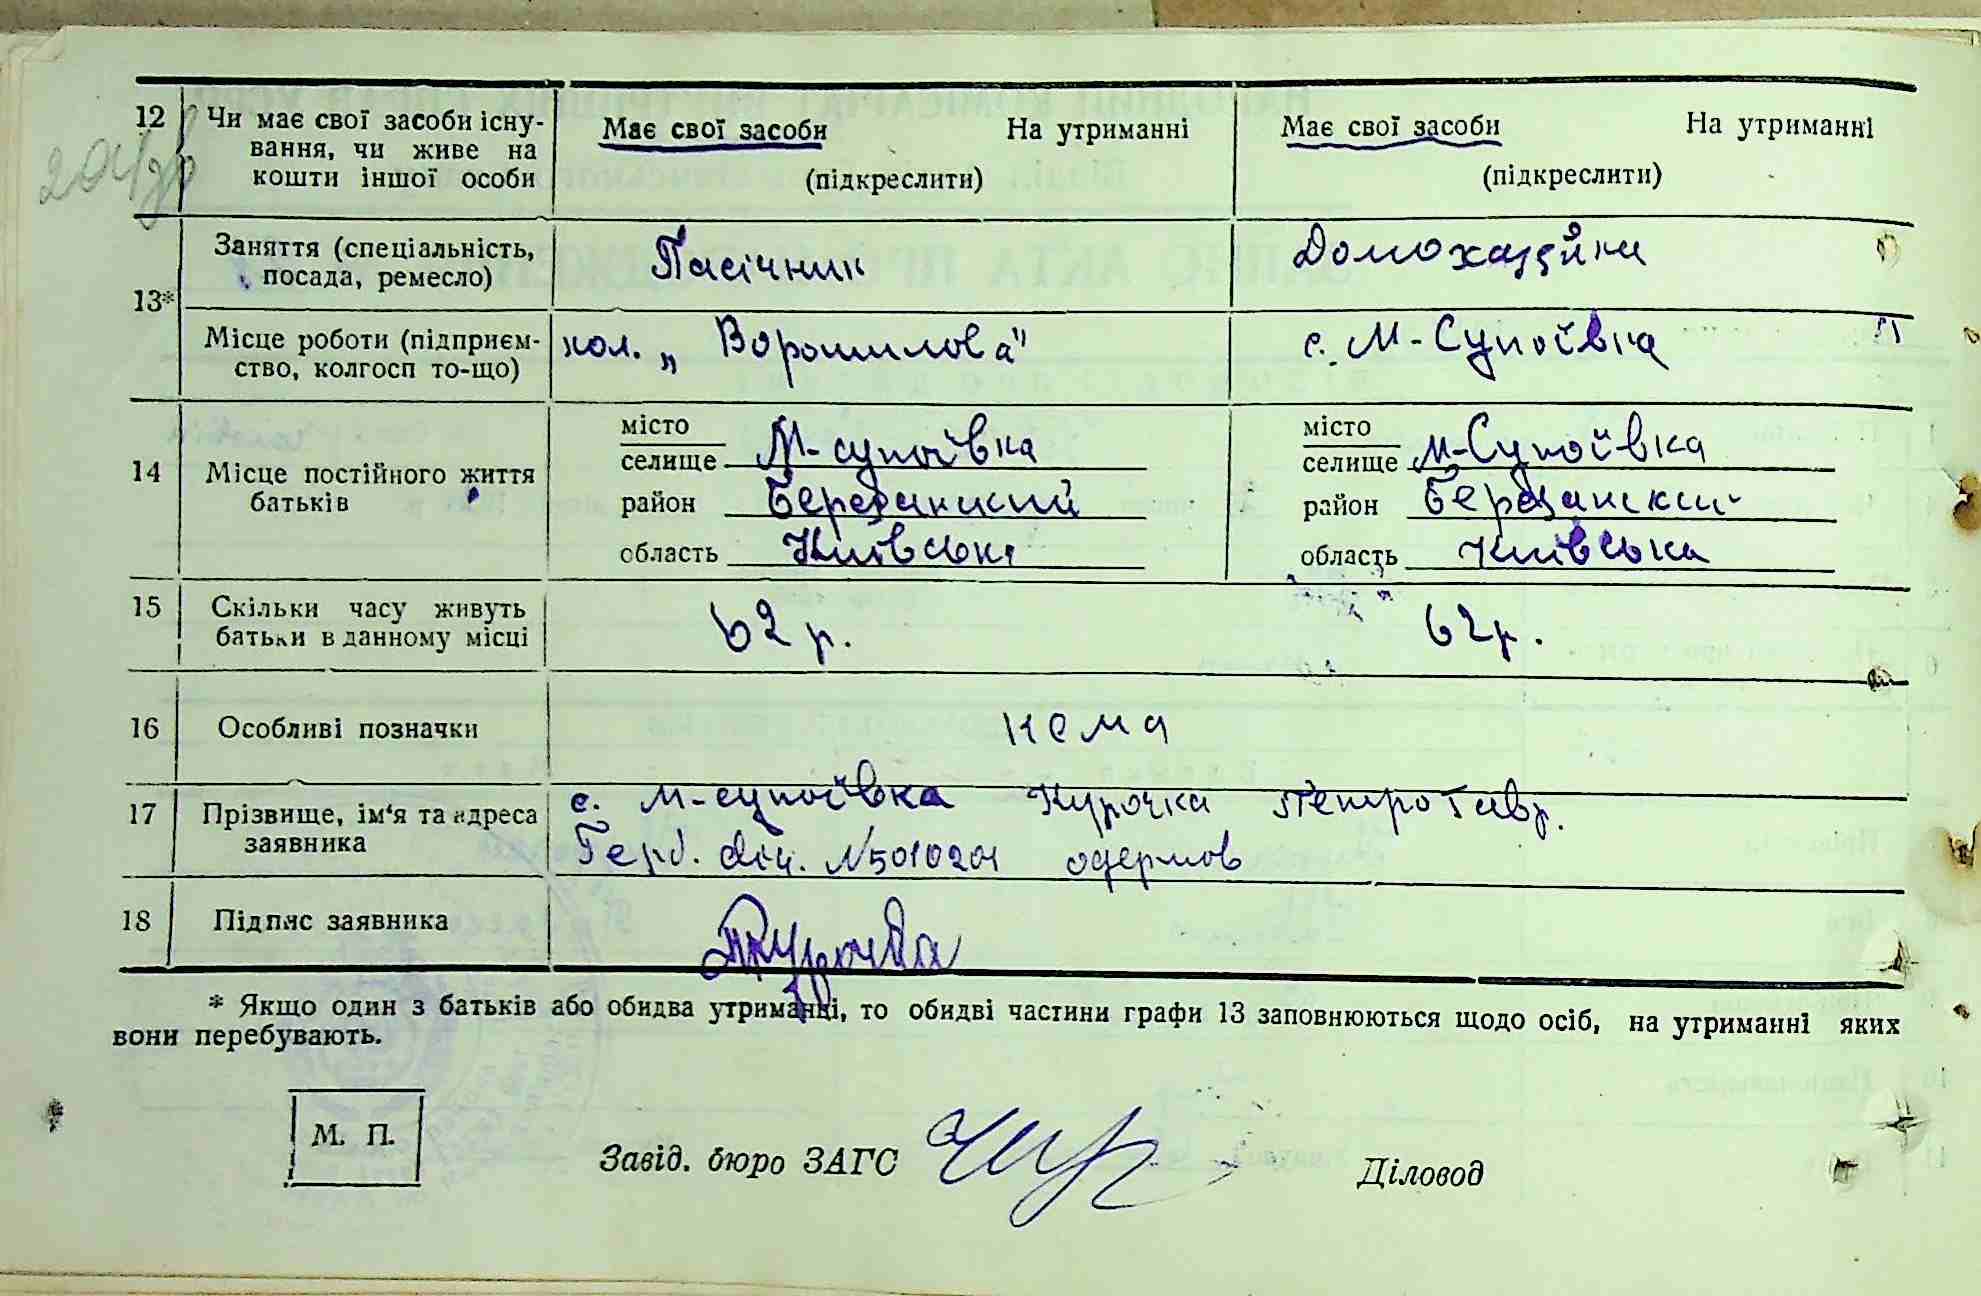 12 Чи має свої засоби існу- Має свої засоби На утриманні Має свої засоби На утриманні
вання, чи живе на
кошти іншої особи (підкреслити) (підкреслити)
Заняття (спеціальність, Пасічник Домохазяйка
посада, ремесло)
13*
Місце роботи (підприєм- кол. „Ворошилова" с. М-Супоївка
ство, колгосп то-що)
місто місто
селище М-супоївка селище М-Супоївка
14 Місце постійного життя район Березанский район Березанский
батьків
область Київська область Київська
15 Скільки часу живуть 62 р. 62 р.
батьки в данному місці
16 Особливі позначки нема
17 Прізвище, ім'я та адреса с. М-супоївка Курочка Петро Гавр.
заявника №5010201 одержав
18 Підпис заявника
* Якщо один з батьків або обидва утриманні, то обидві частини графи 13 заповнюються щодо осіб, на утриманні яких
вони перебувають.
М. П.
Завід. бюро ЗАГС Діловод